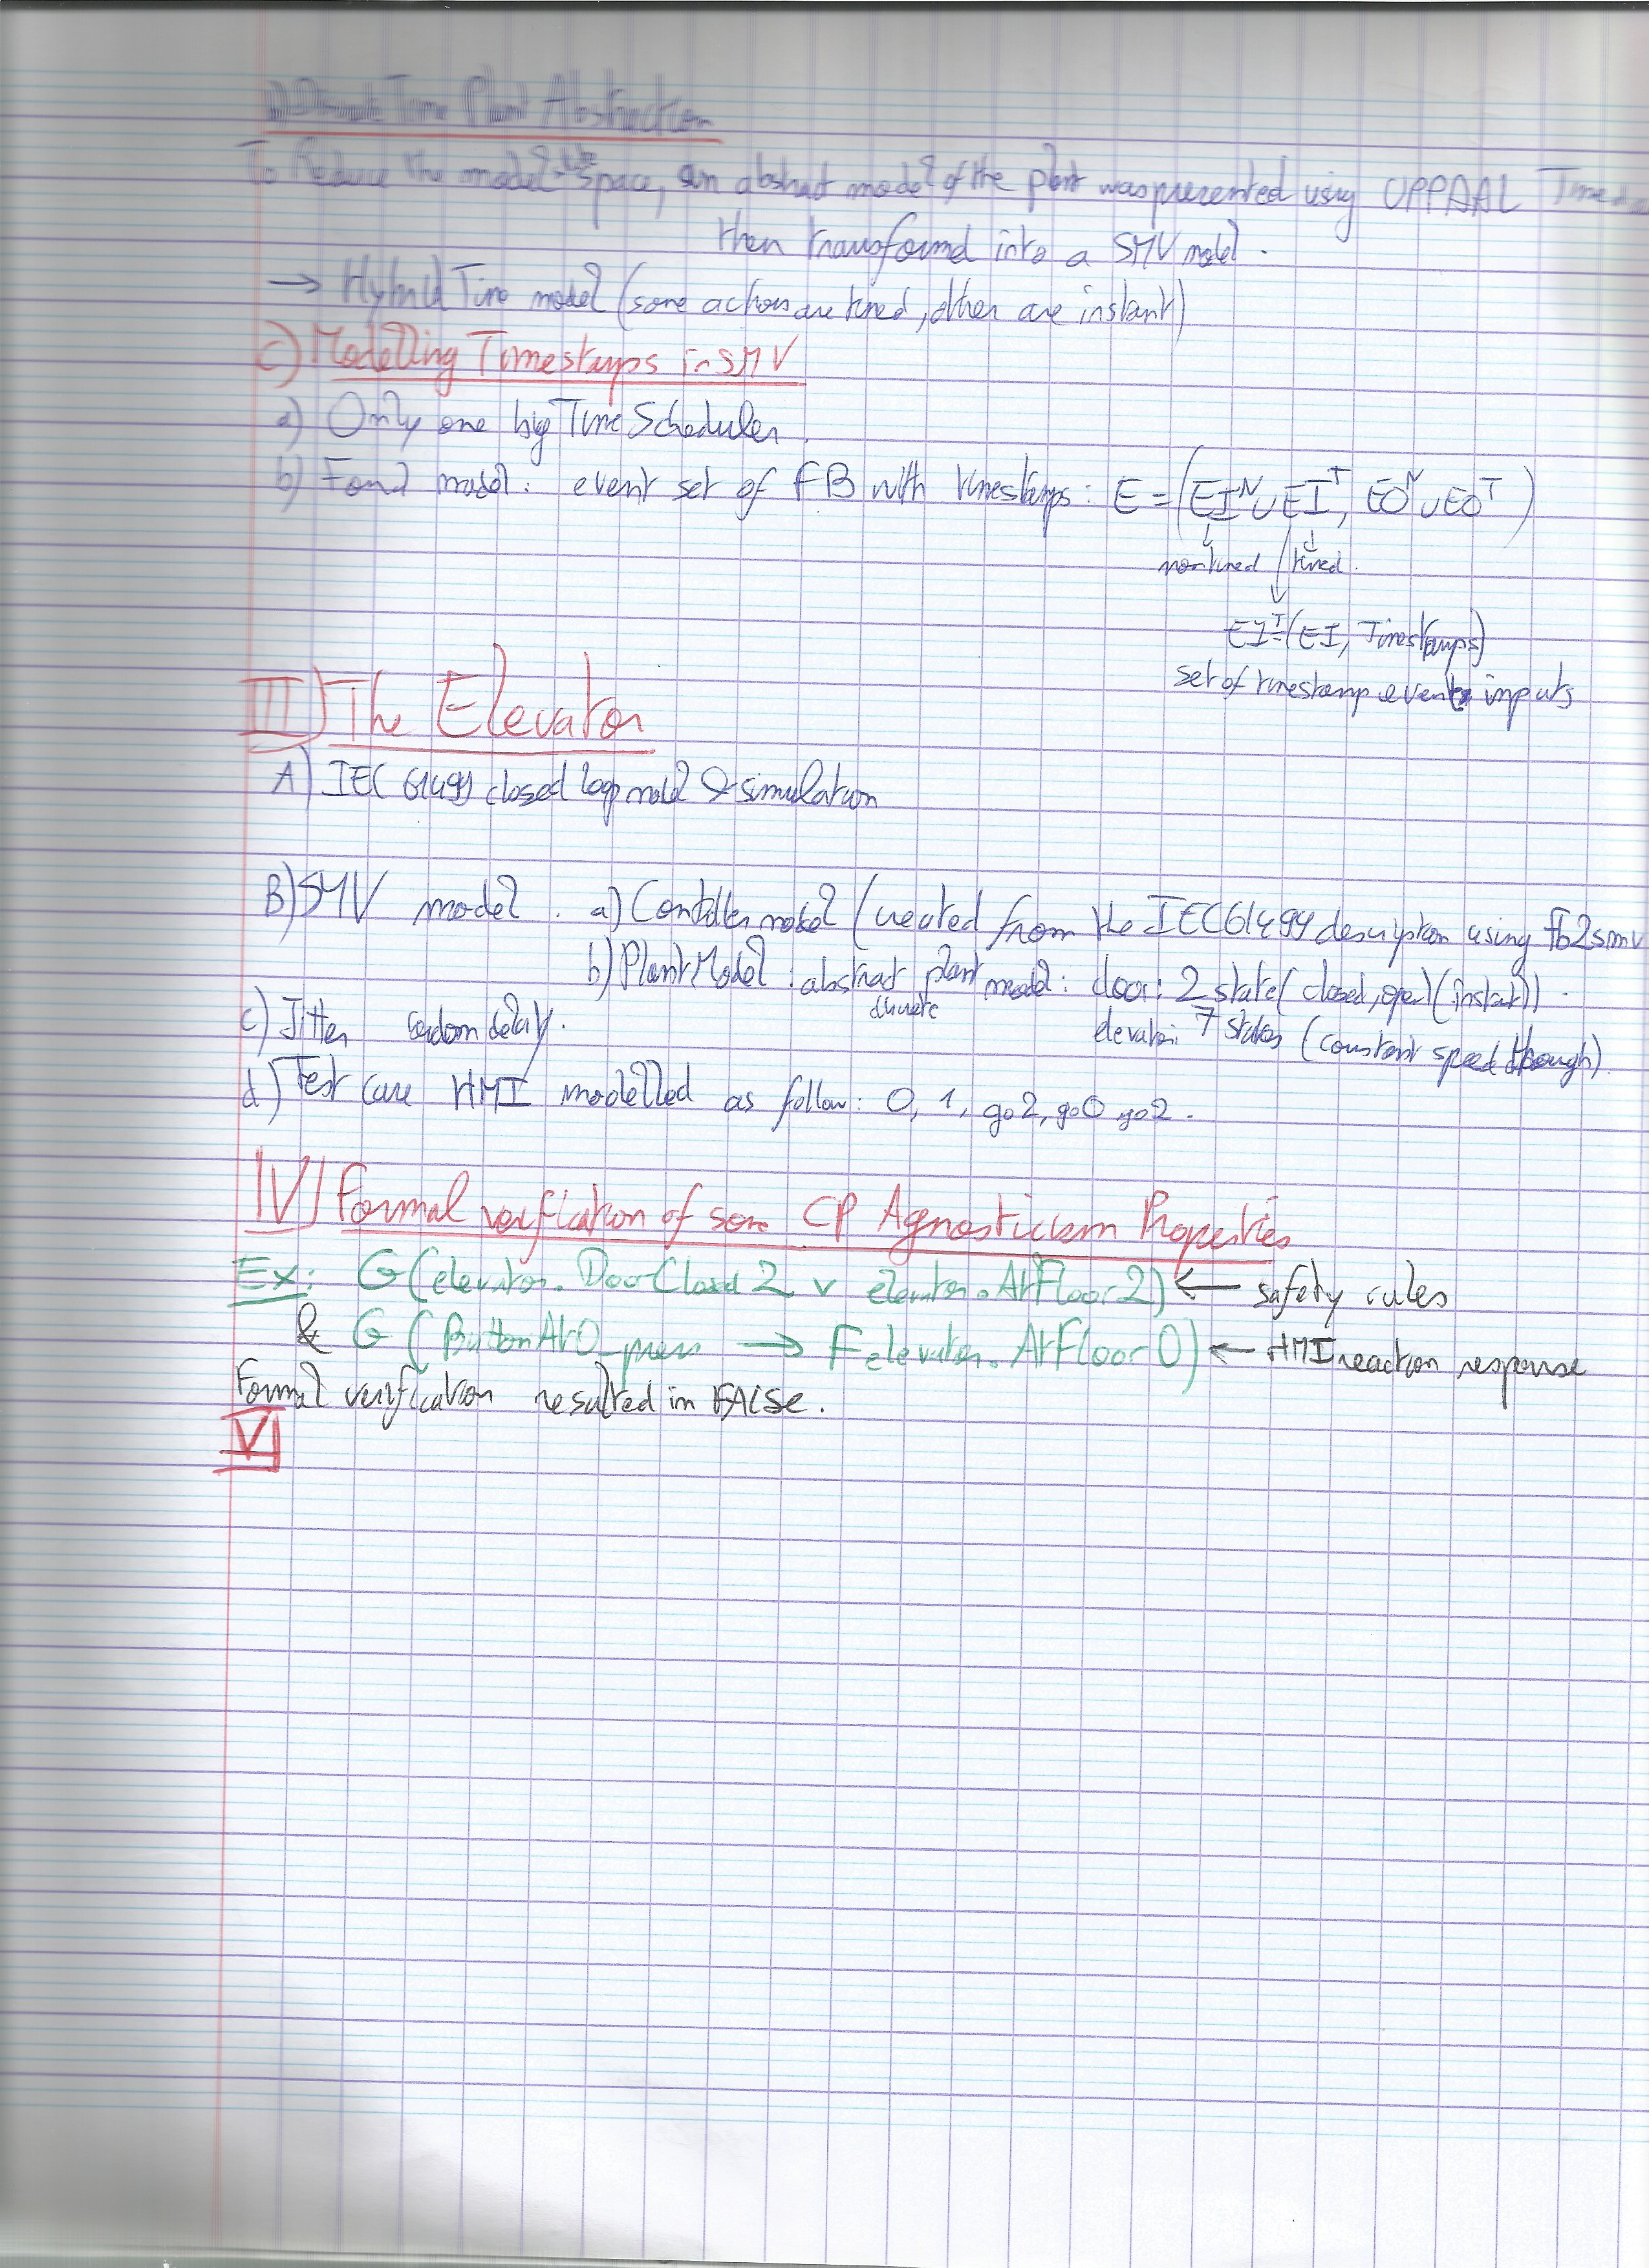 Discrete Time Plant Abstraction
To Reduce the model state space, an abstract model of the plant was presented using UPPAAL Timed
then transformed into a SMV model.
→ Hybrid Time model (some actions are timed, other are instant)
C) Modelling Timestamps in SMV
a) Only one big Time Scheduler.
b) Formal model: event set of FB with timestamps: E = (EI^N ∪ EI^T, EO^N ∪ EO^T)
non timed timed.
EI^T = (EI, Timestamps)
set of timestamp events inputs
III) The Elevator
A) IEC 61499 closed loop model & simulation
B) SMV model. a) Controller model (created from the IEC61499 description using fb2smv
b) Plant Model: abstract plant model: door: 2 state (closed, open) (instant)).
discrete
elevator: 7 states (constant speed though).
c) Jitter random delay.
d) Test case HMI modelled as follow: 0, 1, go2, go0 go2.
IV) Formal verification of some CP Agnosticism Properties
Ex: G(elevator.DoorClosed2 ∨ elevator.AtFloor2) ← safety rules
& G (ButtonAt0_press → F elevator.AtFloor0) ← HMI reaction response
Formal verification resulted in FALSE.
V